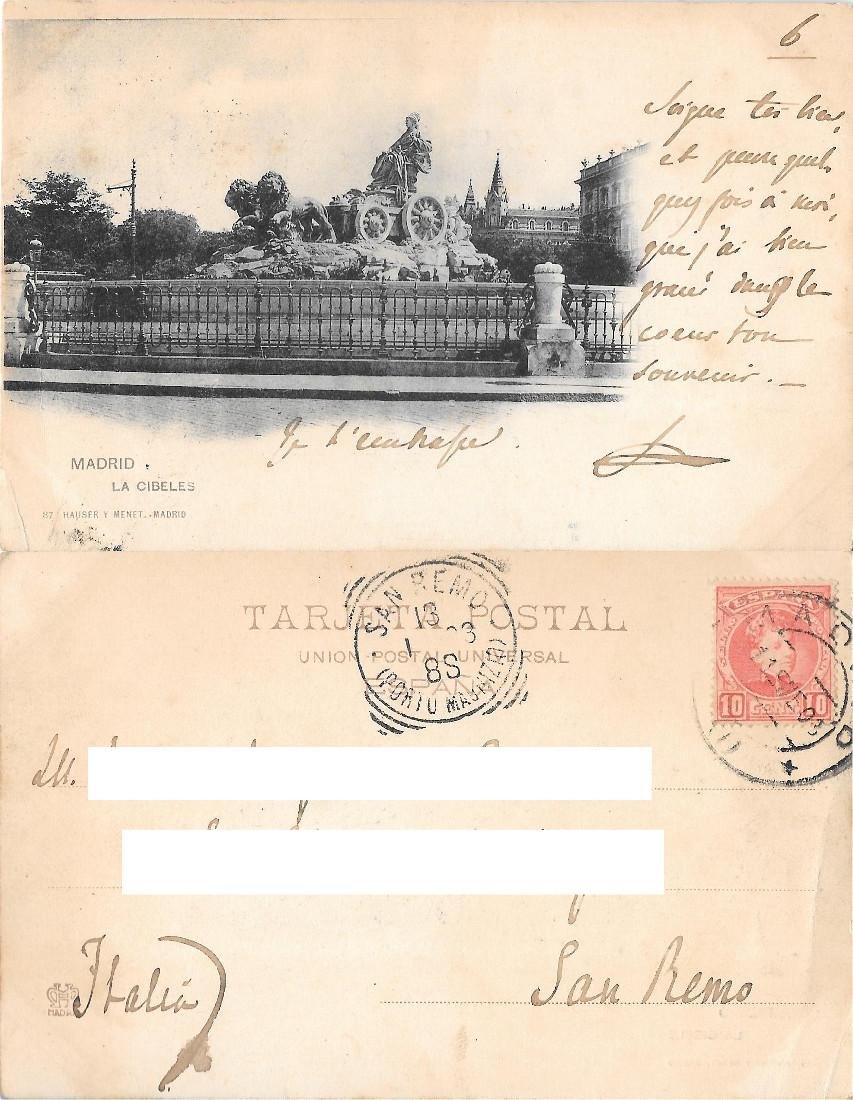 6
Soigne toi bien,
et pense quel
quefois à moi,
que j'ai bien
gravé dans le
coeur ton
souvenir. _
Je t'embrasse.
MADRID.
LA CIBELES
87 HAUSER Y MENET.-MADRID
SAN REMO
13
1 03
8S
(PORTO MAURIZIO)
TARJETA POSTAL
UNION POSTAL UNIVERSAL
ESPAÑA
MADRID
10 CENT 10
M.
San Remo
Italia
MADRID